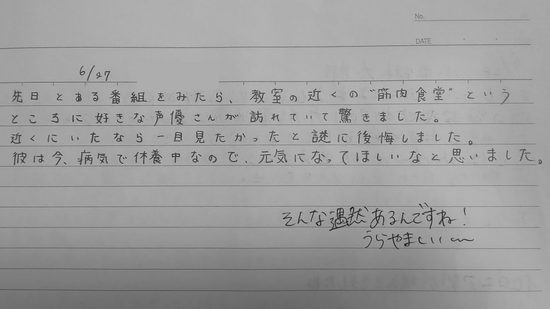 No.
DATE
6/27
先日とある番組をみたら、教室の近くの"筋肉食堂"という
ところに好きな声優さんが訪れていて驚きました。
近くにいたなら一目見たかったと謎に後悔しました。
彼は今、病気で休養中なので、元気になってほしいなと思いました。
そんな偶然あるんですね!
うらやましい〜